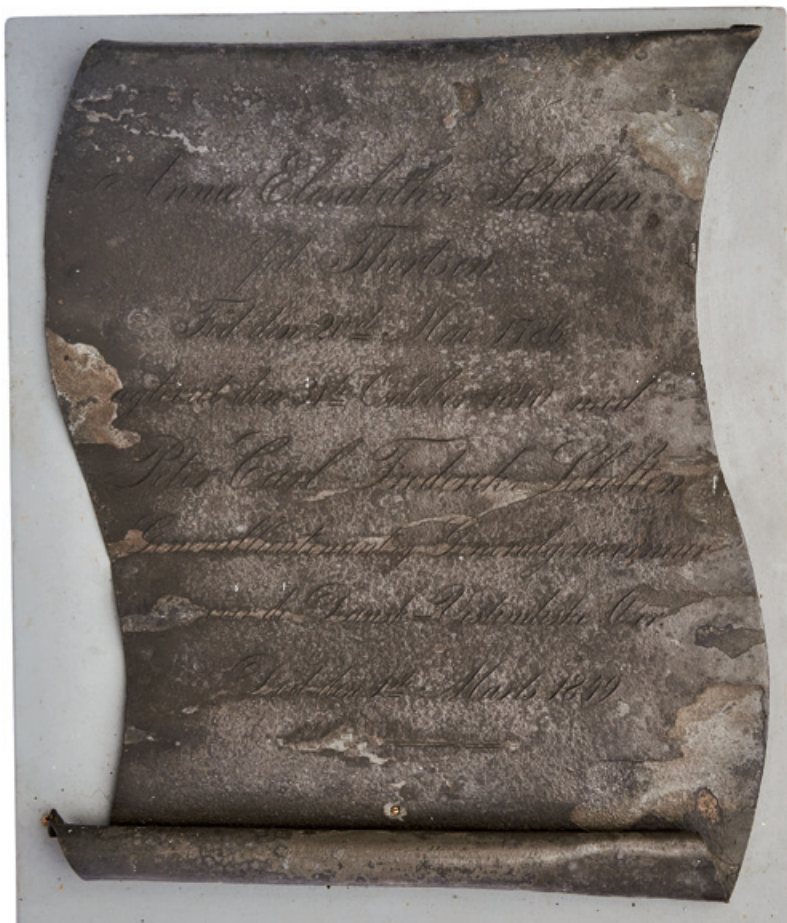 Anna Elisabeth Scholten
født Thortsen
Født den 21de Mai 1786
ægteviet den 31te October 1810 med
Peter Carl Frederik Scholten
Generallieutenant og Generalgouverneur
over de Dansk-Vestindiske Øer.
Død den 1ste Marts 1849